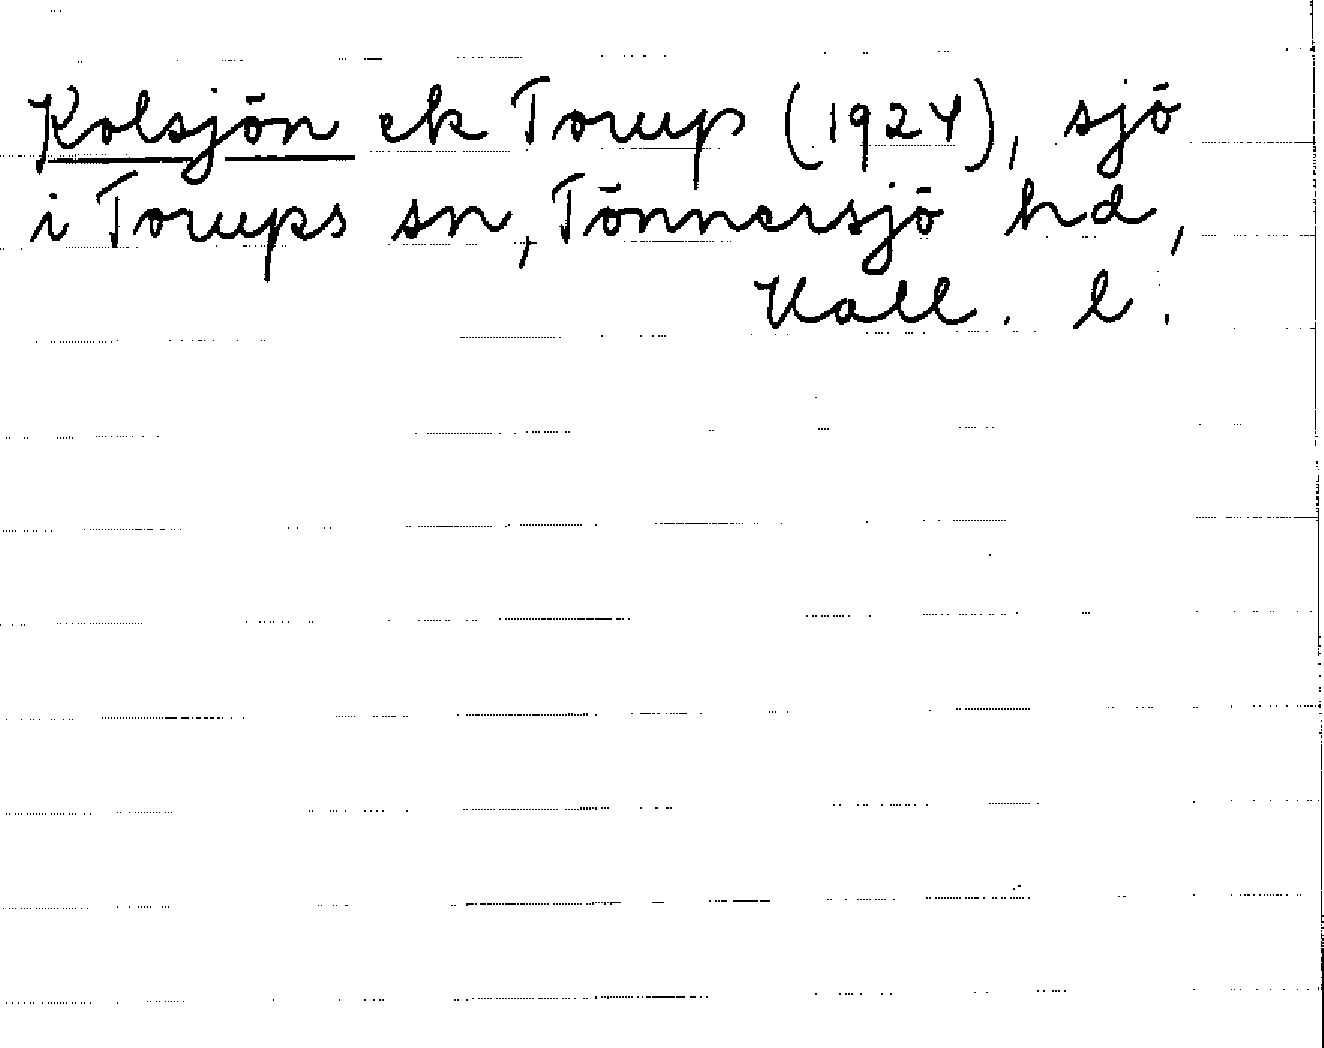 Kolsjön ek Torup (1924), sjö
i Torups sn, Tönnersjö hd,
Hall. l.